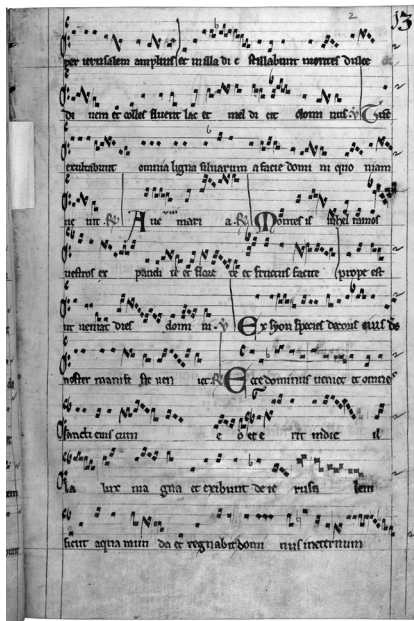 2 13
per ierusalem amplius et in illa di e stillabunt montes dulce
di nem et colles fluent lac et mel di cit domi nus V Tunc
exultabunt omnia ligna siluarum a facie domi ni quo niam
ue nit R A ue mari a R Montes is rahel ramos
uestros ex pandi te et flore te et fructus facite prope est
ut ueniat dies domi ni V Ex syon species decoris eius ds
noster manifeste ueni et R Ecce dominus ueniet et omnes
sancti eius cum e o et e rit in die il
la lux ma gna et exibunt de ie rusa lem
sicut aqua mun da et regnabit domi nus in eternum